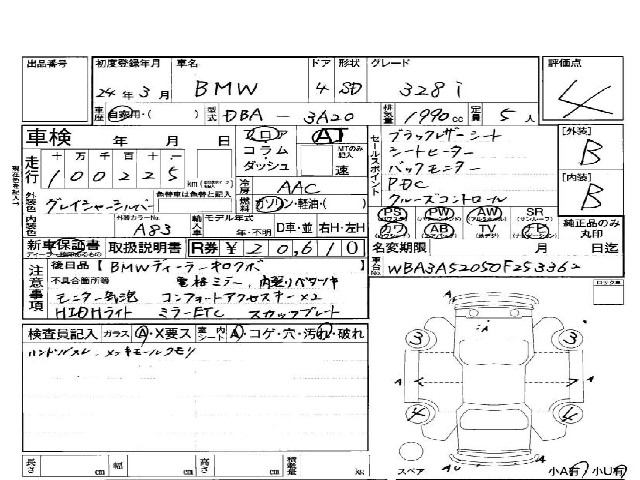 出品番号 初度登録年月 車名 ドア 形状 グレード 評価点
24年3月 BMW 4 SD 328i 4
車歴 自家用・( ) 型式 DBA-3A20 排気量 1990cc 定員 5人
車検 年 月 日 フロア コラム・ダッシュ AT MTのみ記入 速
走行 十 万 千 百 十 一
100225 km
セールスポイント
ブラックレザーシート
シートヒーター
バックモニター
PDC
クルーズコントロール
[外装] B
[内装] B
冷房 AAC
外装色 グレイシャーシルバー 色替車は色替と記入 燃料 ガソリン・軽油・( )
内装色 外装カラーNo. A83 輸入車 モデル年式 年・不明 D車・並 右H・左H
PS PW AW SR
カワ AB TV ナビ
純正品のみ丸印
新車保証書 取扱説明書 R券 ¥20,610 名変期限 月 日迄
注意事項 後日品【BMWディーラーキロクバ
不具合箇所等
HIDライト ミラーETC スカッフプレート
車台No. WBA3A52050F253362
ロック車
検査員記入 ガラス A・X要ス 室内シート A・コゲ・穴・汚れ・破れ
3 3
A A
4 4
A
長さ cm 幅 cm 高さ cm 積載量 kg
スペア 小A有 小U有